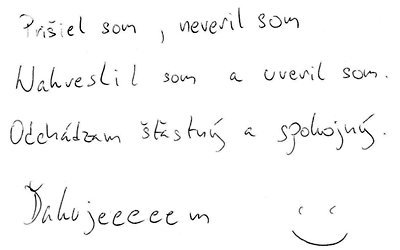 Prišiel som, neveril som
Nakreslil som a uveril som.
Odchádzam štastný a spokojný.
Ďakujeeeeem